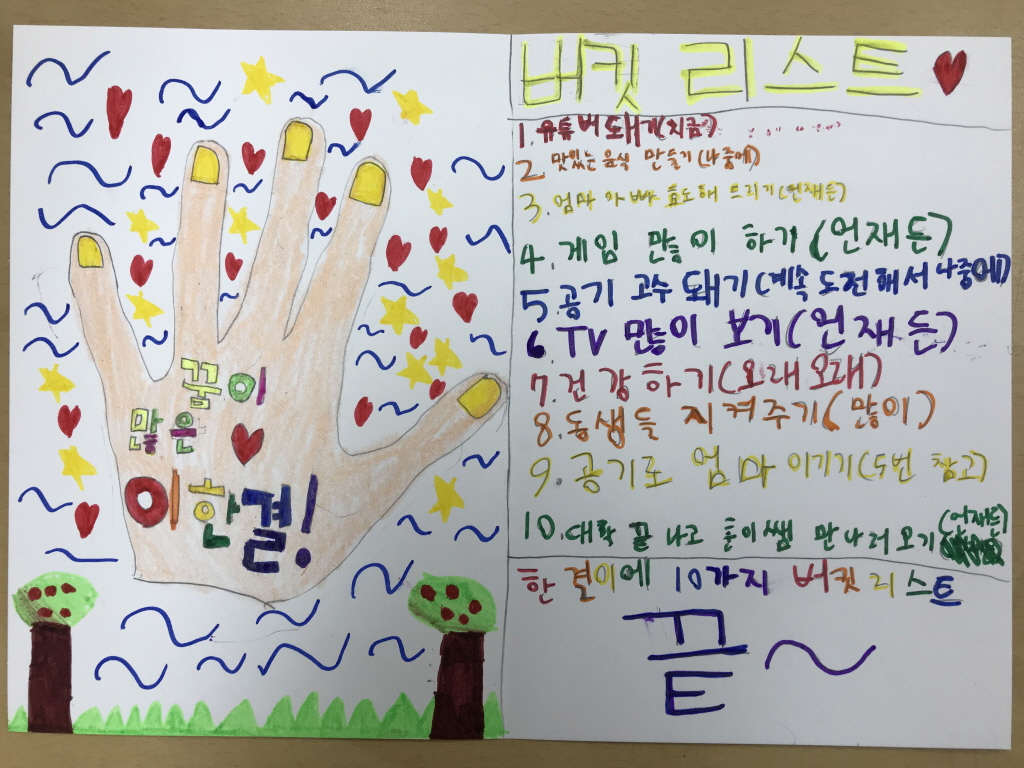 꿈이
많은
이한결!
버킷 리스트
1. 유튜버 돼기(지금)
2. 맛있는 음식 만들기(나중에)
3. 엄마 아빠 효도해 드리기(언재든)
4. 게임 많이 하기(언재든)
5. 공기 고수 돼기(계속 도전해서 나중에)
6. TV 많이 보기(언재든)
7. 건강하기(오래오래)
8. 동생들 지켜주기(많이)
9. 공기로 엄마 이기기(5번 참고)
10. 대학 끝나고 쌤 만나러 오기(언재든)
한결이에 10가지 버킷리스트
끝~